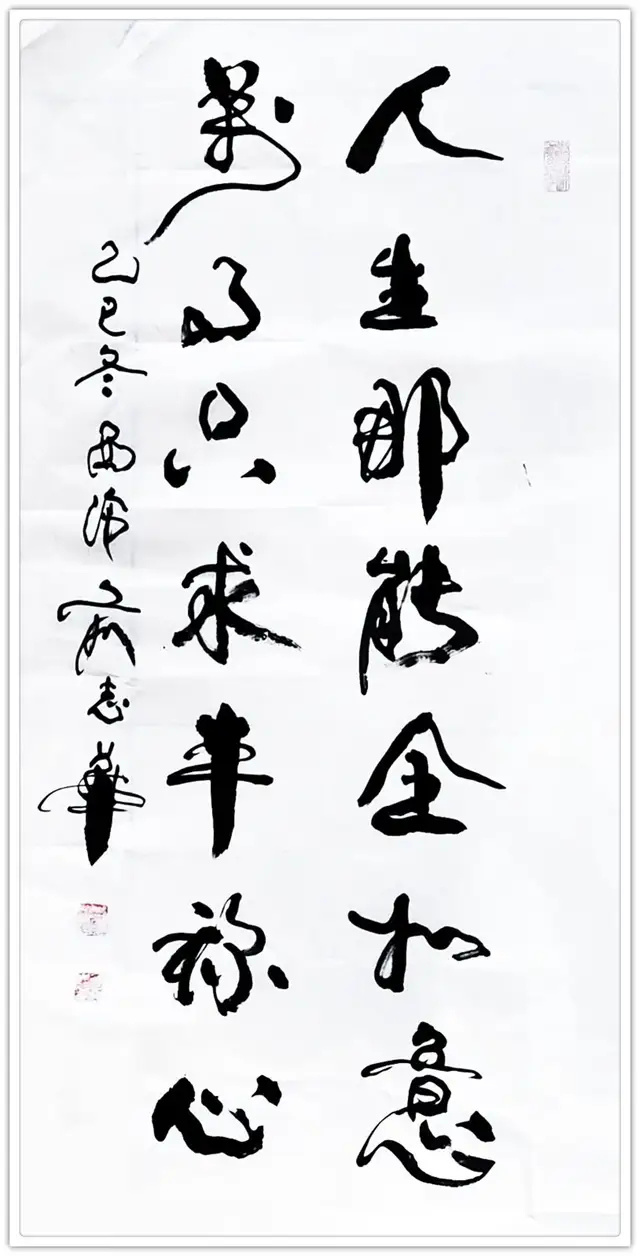 人生那能全如意
万事只求半称心
乙巳冬 西 志华